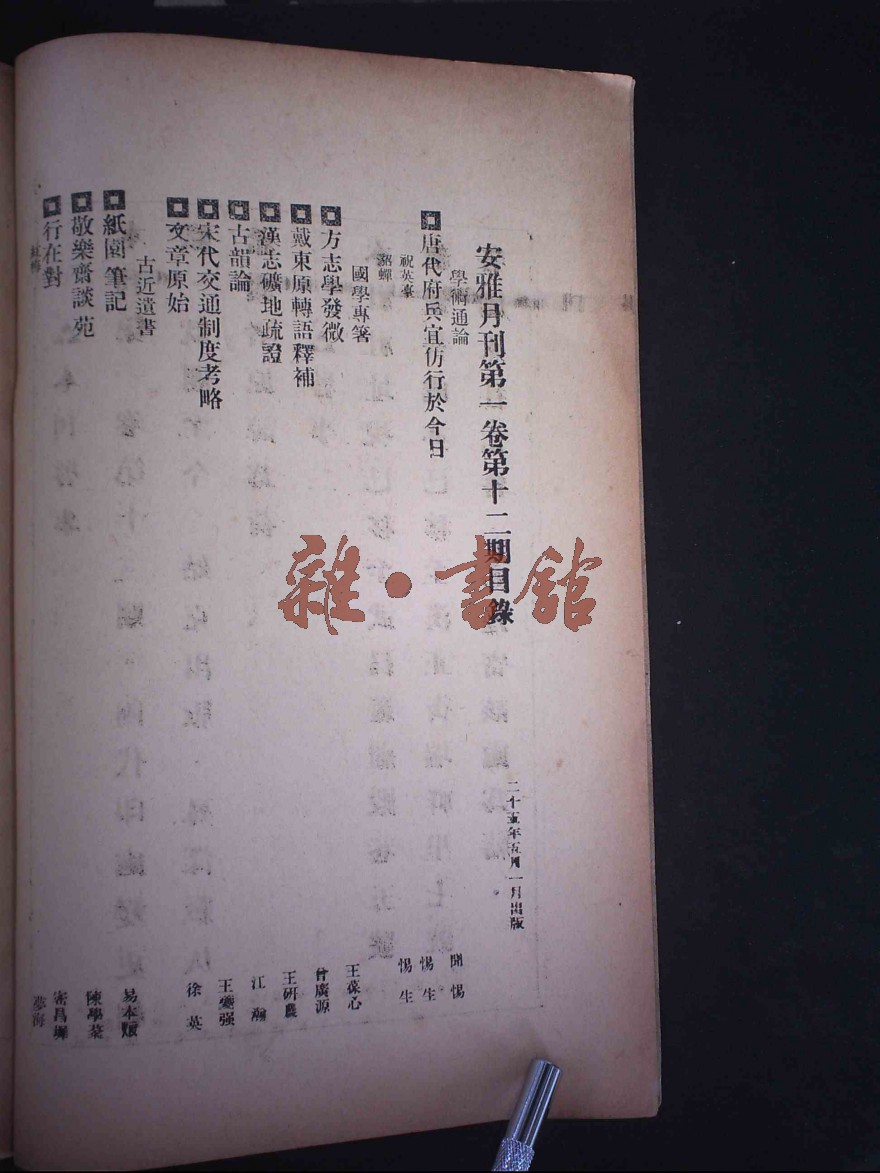 安雅月刊第一卷第十二期目錄
二十五年五月一日出版
學術通論
唐代府兵宜仿行於今日
惕生
祝英臺
惕生
貂蟬
國學專箸
方志學發微
王葆心
戴東原轉語釋補
曾廣源
漢志礦地疏證
王研農
古韻論
江瀚
宋代交通制度考略
王夔强
文章原始
徐英
古近遺書
紙園筆記
易本烺
敬樂齋談苑
陳學棻
行在對
雜·書館